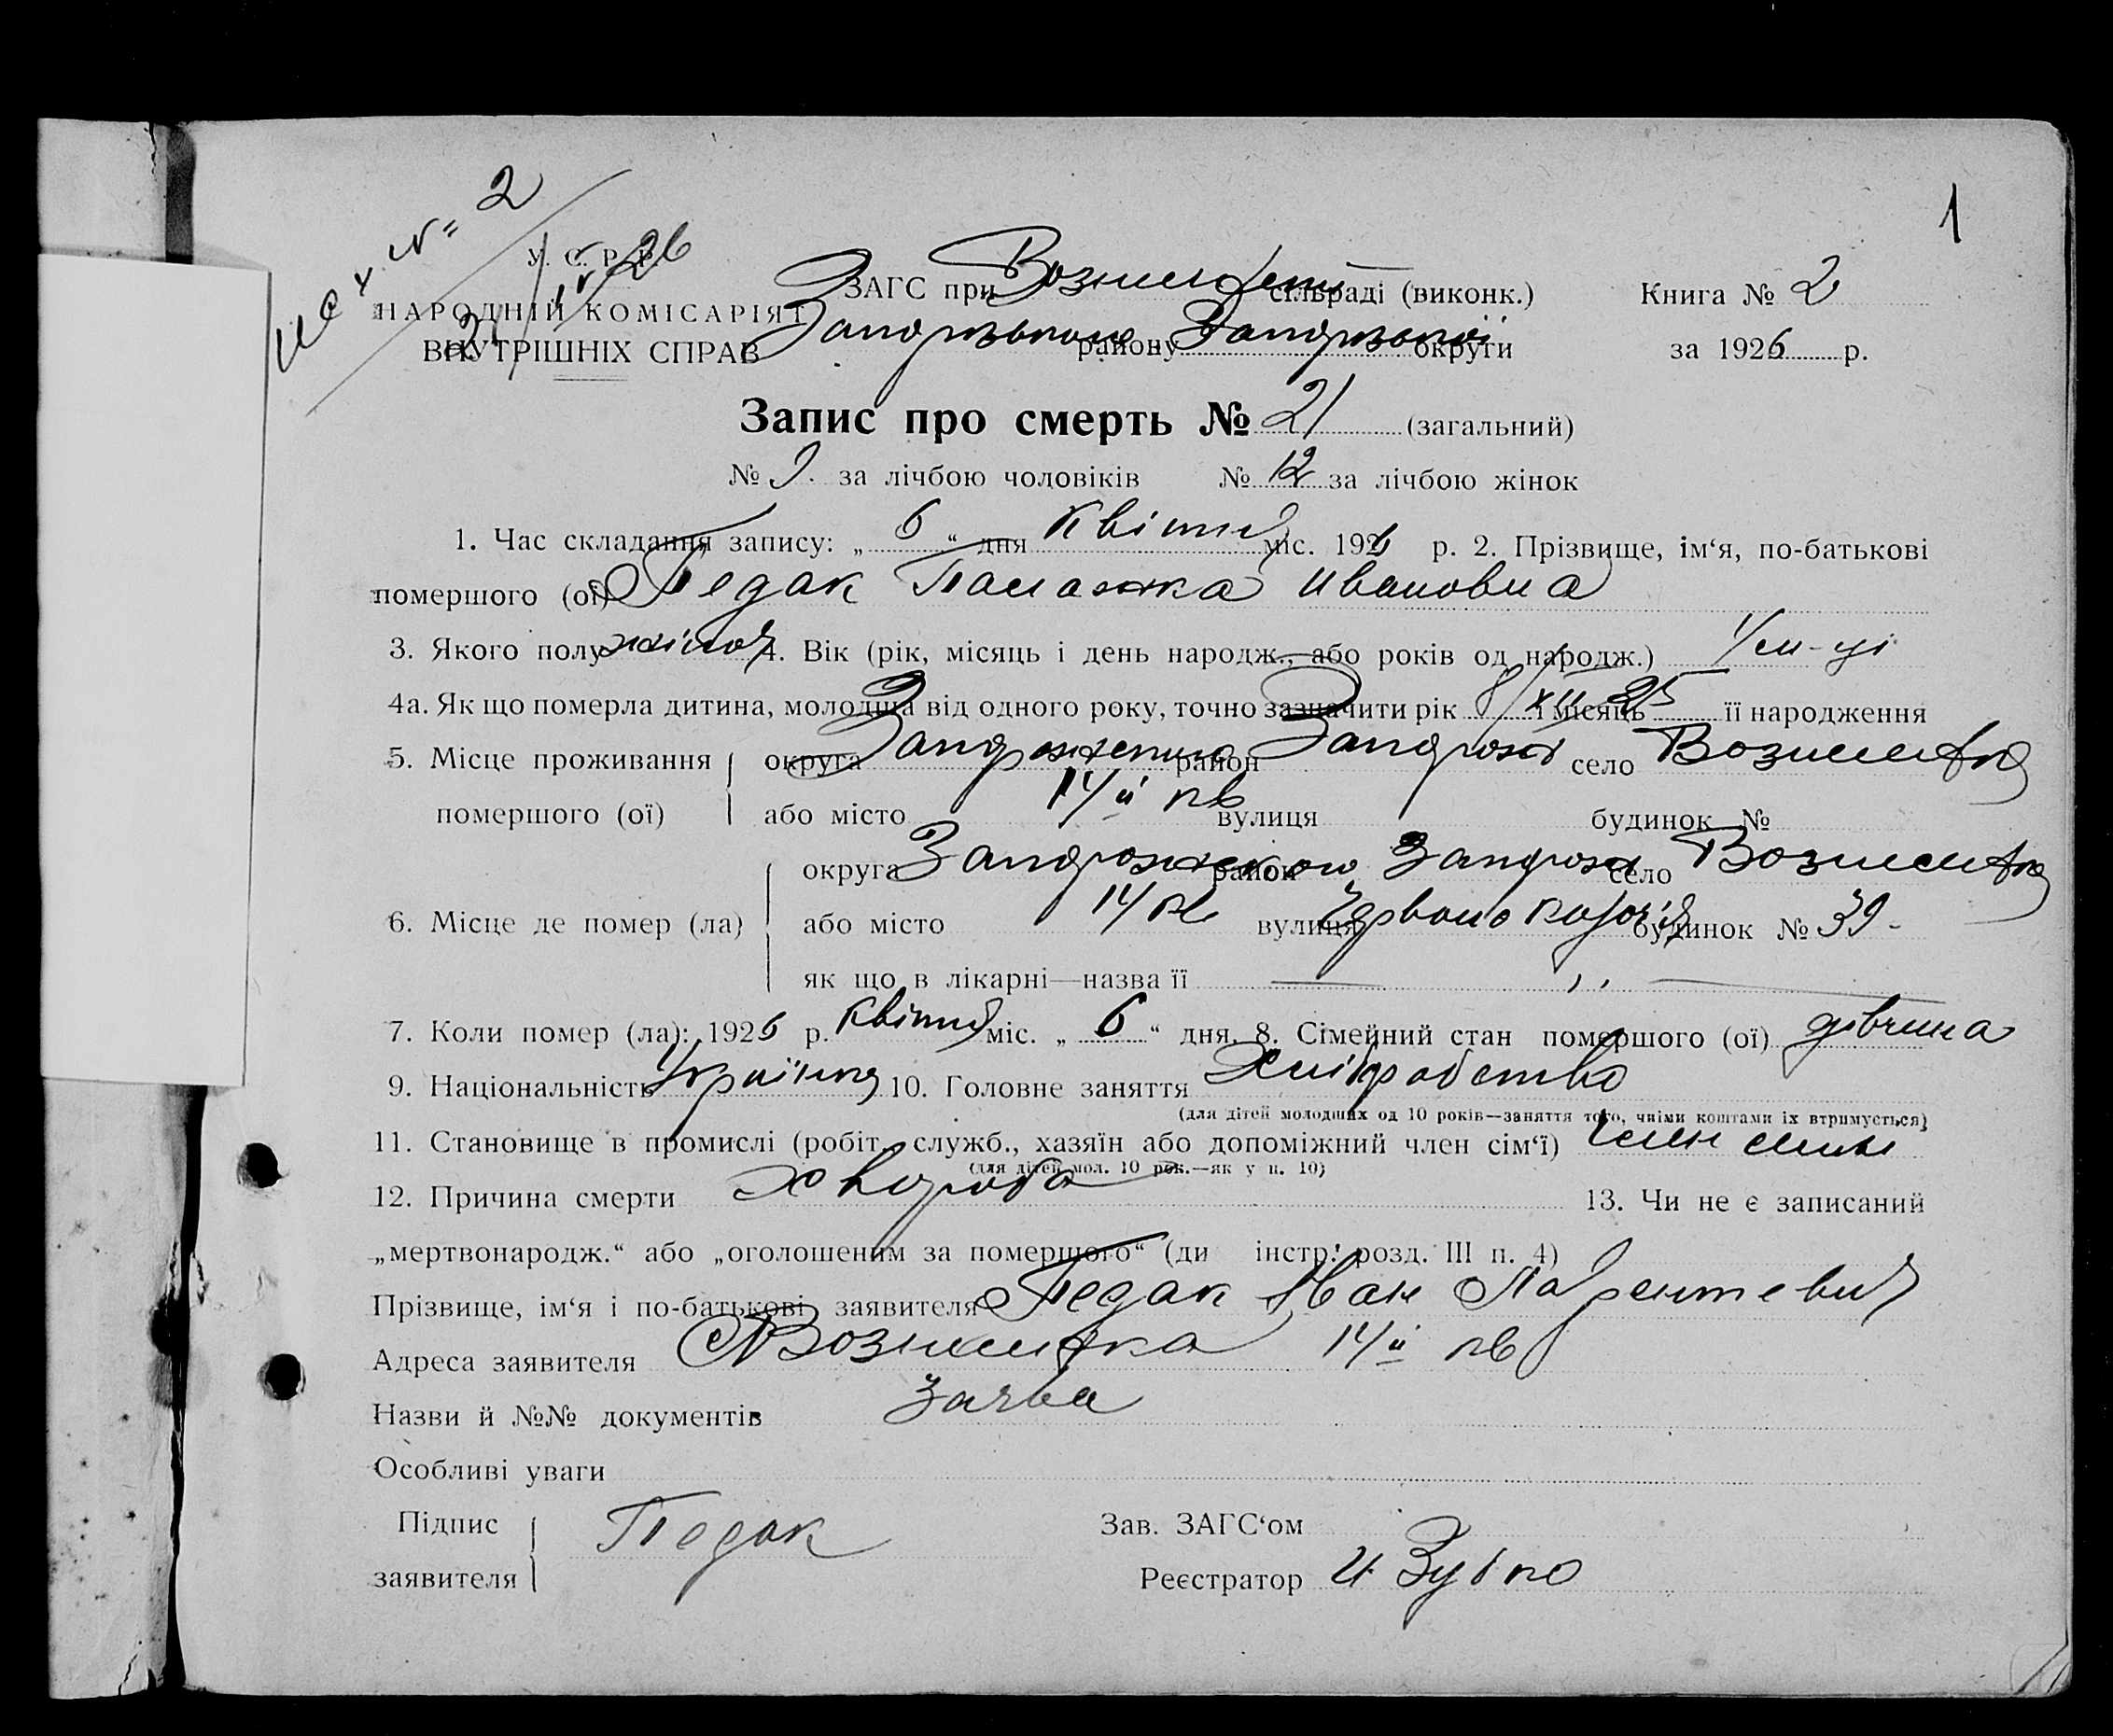 1
2
У. С. Р. Р.
ЗАГС при сільраді (виконк.) Книга № 2
НАРОДНІЙ КОМІСАРІЯТ
ВНУТРІШНІХ СПРАВ району округи за 1926 р.
Запис про смерть № 21 (загальний)
№ 9. за лічбою чоловіків № 12 за лічбою жінок
1. Час складання запису: „ 6 “ дня квітня міс. 1926 р. 2. Прізвище, ім‘я, по-батькові
помершого (ої) Педак Палажка Ивановна
3. Якого полу жіноч 4. Вік (рік, місяць і день народж., або років од народж.) м-ці
4а. Як що померла дитина, молодща від одного року, точно зазначити рік 8/XII 25 і місяць її народження
5. Місце проживання округа район село
помершого (ої) або місто 14й кв вулиця будинок №
округа район село
6. Місце де помер (ла) або місто 14 кв вулиця Червоно будинок № 39 -
як що в лікарні—назва її — „ —
7. Коли помер (ла): 1926 р. квітня міс. „ 6 “ дня. 8. Сімейний стан помершого (ої) дівчина
9. Національність Українка 10. Головне заняття Хліборобство
(для дітей молодших од 10 років—заняття того, чиїми коштами їх втримується)
11. Становище в промислі (робіт., служб., хазяїн або допоміжний член сім‘ї) член
(для дітей мол. 10 рок.—як у п. 10)
12. Причина смерти хвороба 13. Чи не є записаний
„мертвонародж.“ або „оголошеним за помершого“ (ди інстр. розд. III п. 4)
Прізвище, ім‘я і по-батькові заявителя Педак Іван Лаврентевич
Адреса заявителя 14й кв
Назви й №№ документів заява
Особливі уваги
Підпис Педак Зав. ЗАГС‘ом
заявителя Реєстратор И Зубко